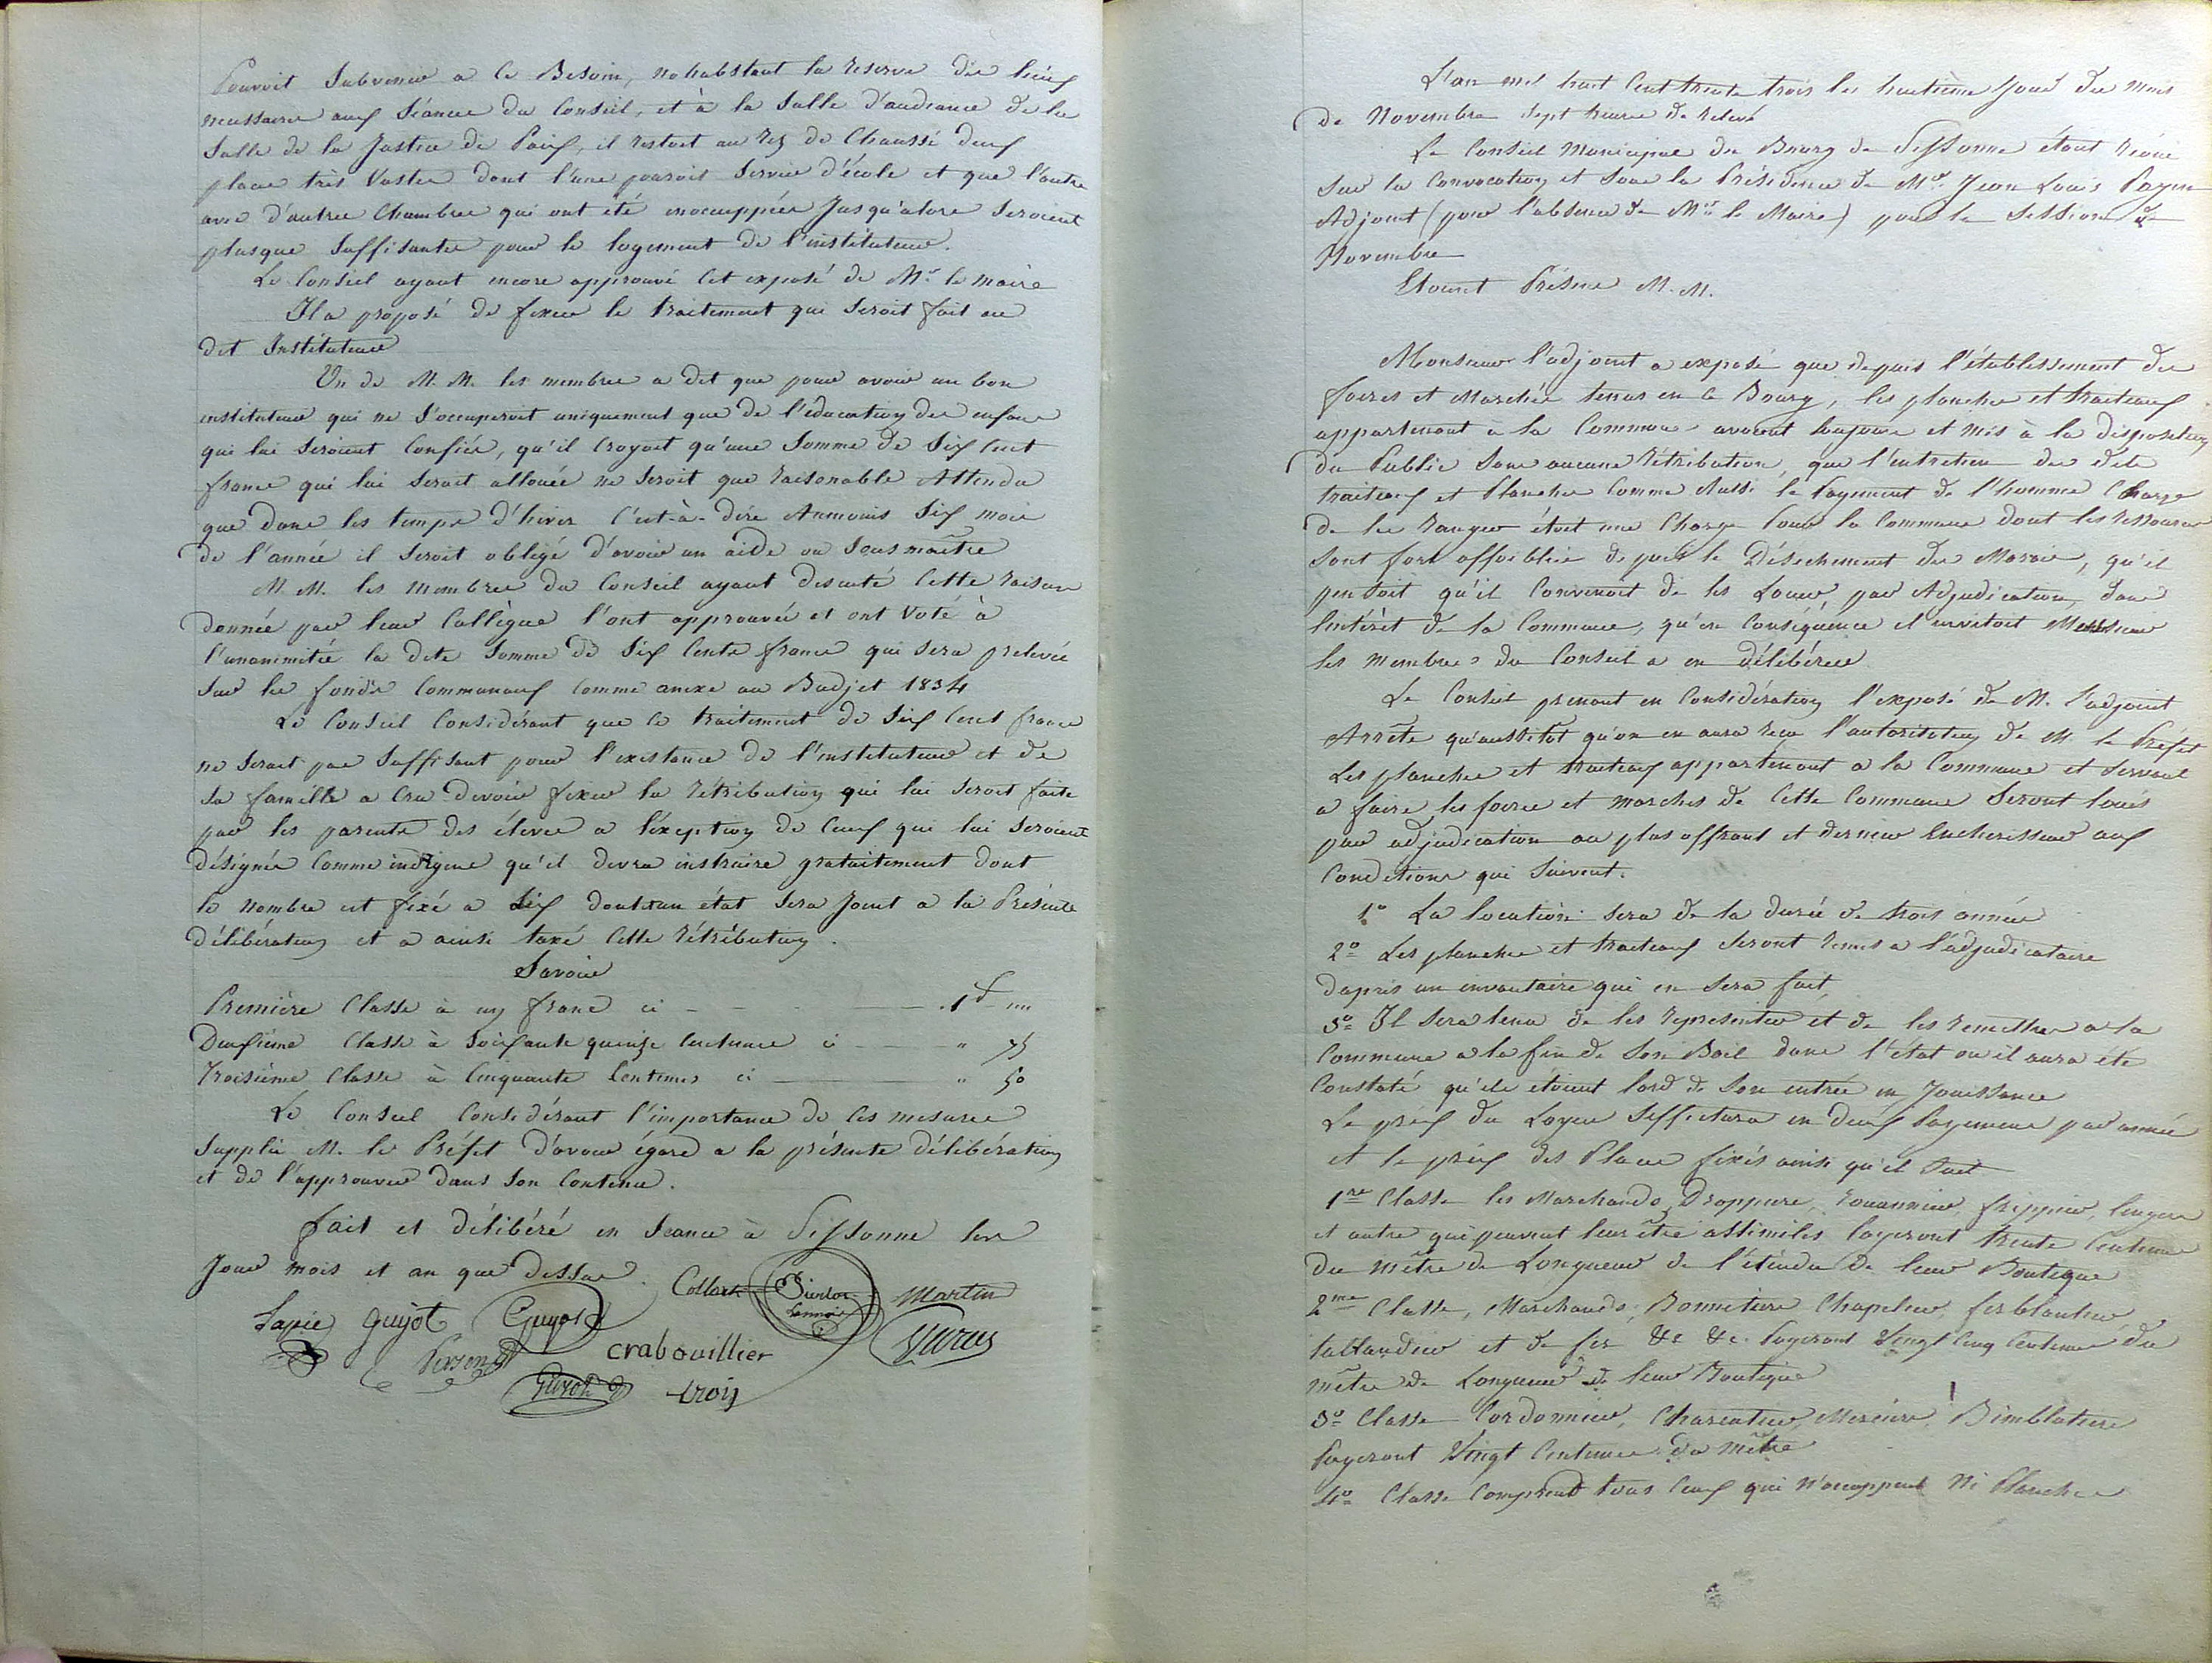 Pouroit Subvenir a ce Besoin, nohabstant la réserve des lieux
nécessaires aux Séances du Conseil, et à la Salle d'audiance de la
Salle de la Justice de Paix, il restoit au rez de Chaussé deux
places très Vastes dont l'une pouroit Servir d'école et que l'autre
avec d'autres Chambres qui ont été inoccuppées Jusqu'alors Seroient
plusque Suffisantes pour le logement de l'instituteur.
Le Conseil ayant encore approuvé cet exposé de Mr. le maire
Il a proposé de fixer le traitement qui Seroit fait au
dit Instituteur
Un de M. M. les membres a dit que pour avoir un bon
instituteur qui ne S'occuperoit uniquement que de l'éducation des enfans
qui lui Seroient Confiés, qu'il Croyoit qu'une Somme de Six Cent
francs qui lui Seroit allouée ne Seroit que raisonable Attendu
que dans les temps d'hiver C'est-à-dire Aumoins Six mois
de l'année il Seroit obligé d'avoir un aide ou Sous maître
M. M. les Membres du Conseil ayant discuté Cette raison
donnée par leur Collègue l'ont approuvée et ont Voté à
l'unanimitée la dite Somme de Six Cents francs qui Sera prelevée
Sur les fonds Communaux Comme anexe au Budjet 1834
Le Conseil Considérant que ce traitement de Six Cent francs
ne Seroit pas Suffisant pour l'existance de l'instituteur et de
Sa famille a Cru devoir fixer la rétribution qui lui Seroit faite
par les parents des élèves a l'exeption de Ceux qui lui Seroient
désignés Comme indigens qu'il devra instruire gratuitement dont
le Nombre est fixé a Six dont un état Sera Joint a la Présente
délibération et a ainsi taxé Cette rétribution.
Savoir
Première Classe à un franc ci 1f "
Deuxième Classe à Soixante quinze Centimes ci " 75
Troisième Classe à Cinquante Centimes ci " 50
Le Conseil Considérant l'importance de Ces mesures
Supplie M. le Préfet d'avoir égard a la présente délibération
et de l'approuver dans Son Contenu.
Fait et délibéré en Seance à Sissonne les
Jour mois et an que dessus.
Collart Martin
Lapie Guyot Guyot
crabouillier
L'an mil huit Cent trente trois le huitième Jour du mois
de Novembre Sept heures de relevé
Le Conseil Municipal du Bourg de Sissonne étant réunie
Sur la Convocation et Sous la Présidence de Mr. Jean Louis Payen
Adjoint (pour l'absence de Mr. le Maire) pour la Session de
Novembre
Etoient Présens M. M.
Monsieur l'adjoint a exposé que depuis l'établissement des
foires et Marchés tenus en ce Bourg, les planches et traiteaux
appartenant a la Commune avoient toujours et mis à la disposition
du Public Sans aucune rétribution, que l'entretien des dits
traiteaux et Planches Comme Aussi le Payement de l'homme Chargé
de les Ranger étoit une Charge Pour la Commune dont les ressources
Sont fort affoiblies depuis le Désechement des Marais, qu'il
pensoit qu'il Convenoit de les Louer, par Adjudication, dans
l'intérêt de la Commune, qu'en Conséquence il invitoit Messieurs
les Membres du Conseil a en délibérer.
Le Conseil prenant en Considération l'exposé de M. l'adjoint
Arrête qu'aussitôt qu'on en aura reçu l'autorisation de M. le Préfet
Les planches et traiteaux appartenant a la Commune et Servant
a faire les foires et marchés de Cette Commune Seront loués
par adjudication au plus offrant et dernier Encherisseur aux
Conditions qui Suivent.
1° La location Sera de la durée de trois années
2° Les planches et traiteaux Seront remis a l'adjudicataire
d'après un inventaire qui en Sera fait,
3° Il Sera tenu de les representer et de les remettre a la
Commune a la fin de Son Bail dans l'état ou il aura été
Constaté qu'ils étoient lors de Son entrée en Jouissance
Le prix du Loyer S'effectura en deux Payemens par année
et le prix des Places fixés ainsi qu'il Suit
1re Classe les Marchands Droppiers, rouanniers, frippiers, lingers
et autre qui peuvent leurs être assimilés Payeront trente Centimes
du mètre de Longueur de l'étendu de leur Boutique
2me Classe, Marchands, Bonnetiers Chapeliers, ferblantiers
taillandiers et de fer &c &c. Payeront Vingt Cinq Centimes du
mètre de Longueur de leur Boutique
3e Classe Cordonniers, Charcutiers, Merciers, Bimblotiers
Payeront Vingt Centimes du Mètre
4e Classe Comprend tous Ceux qui n'occuppent Ni Planches